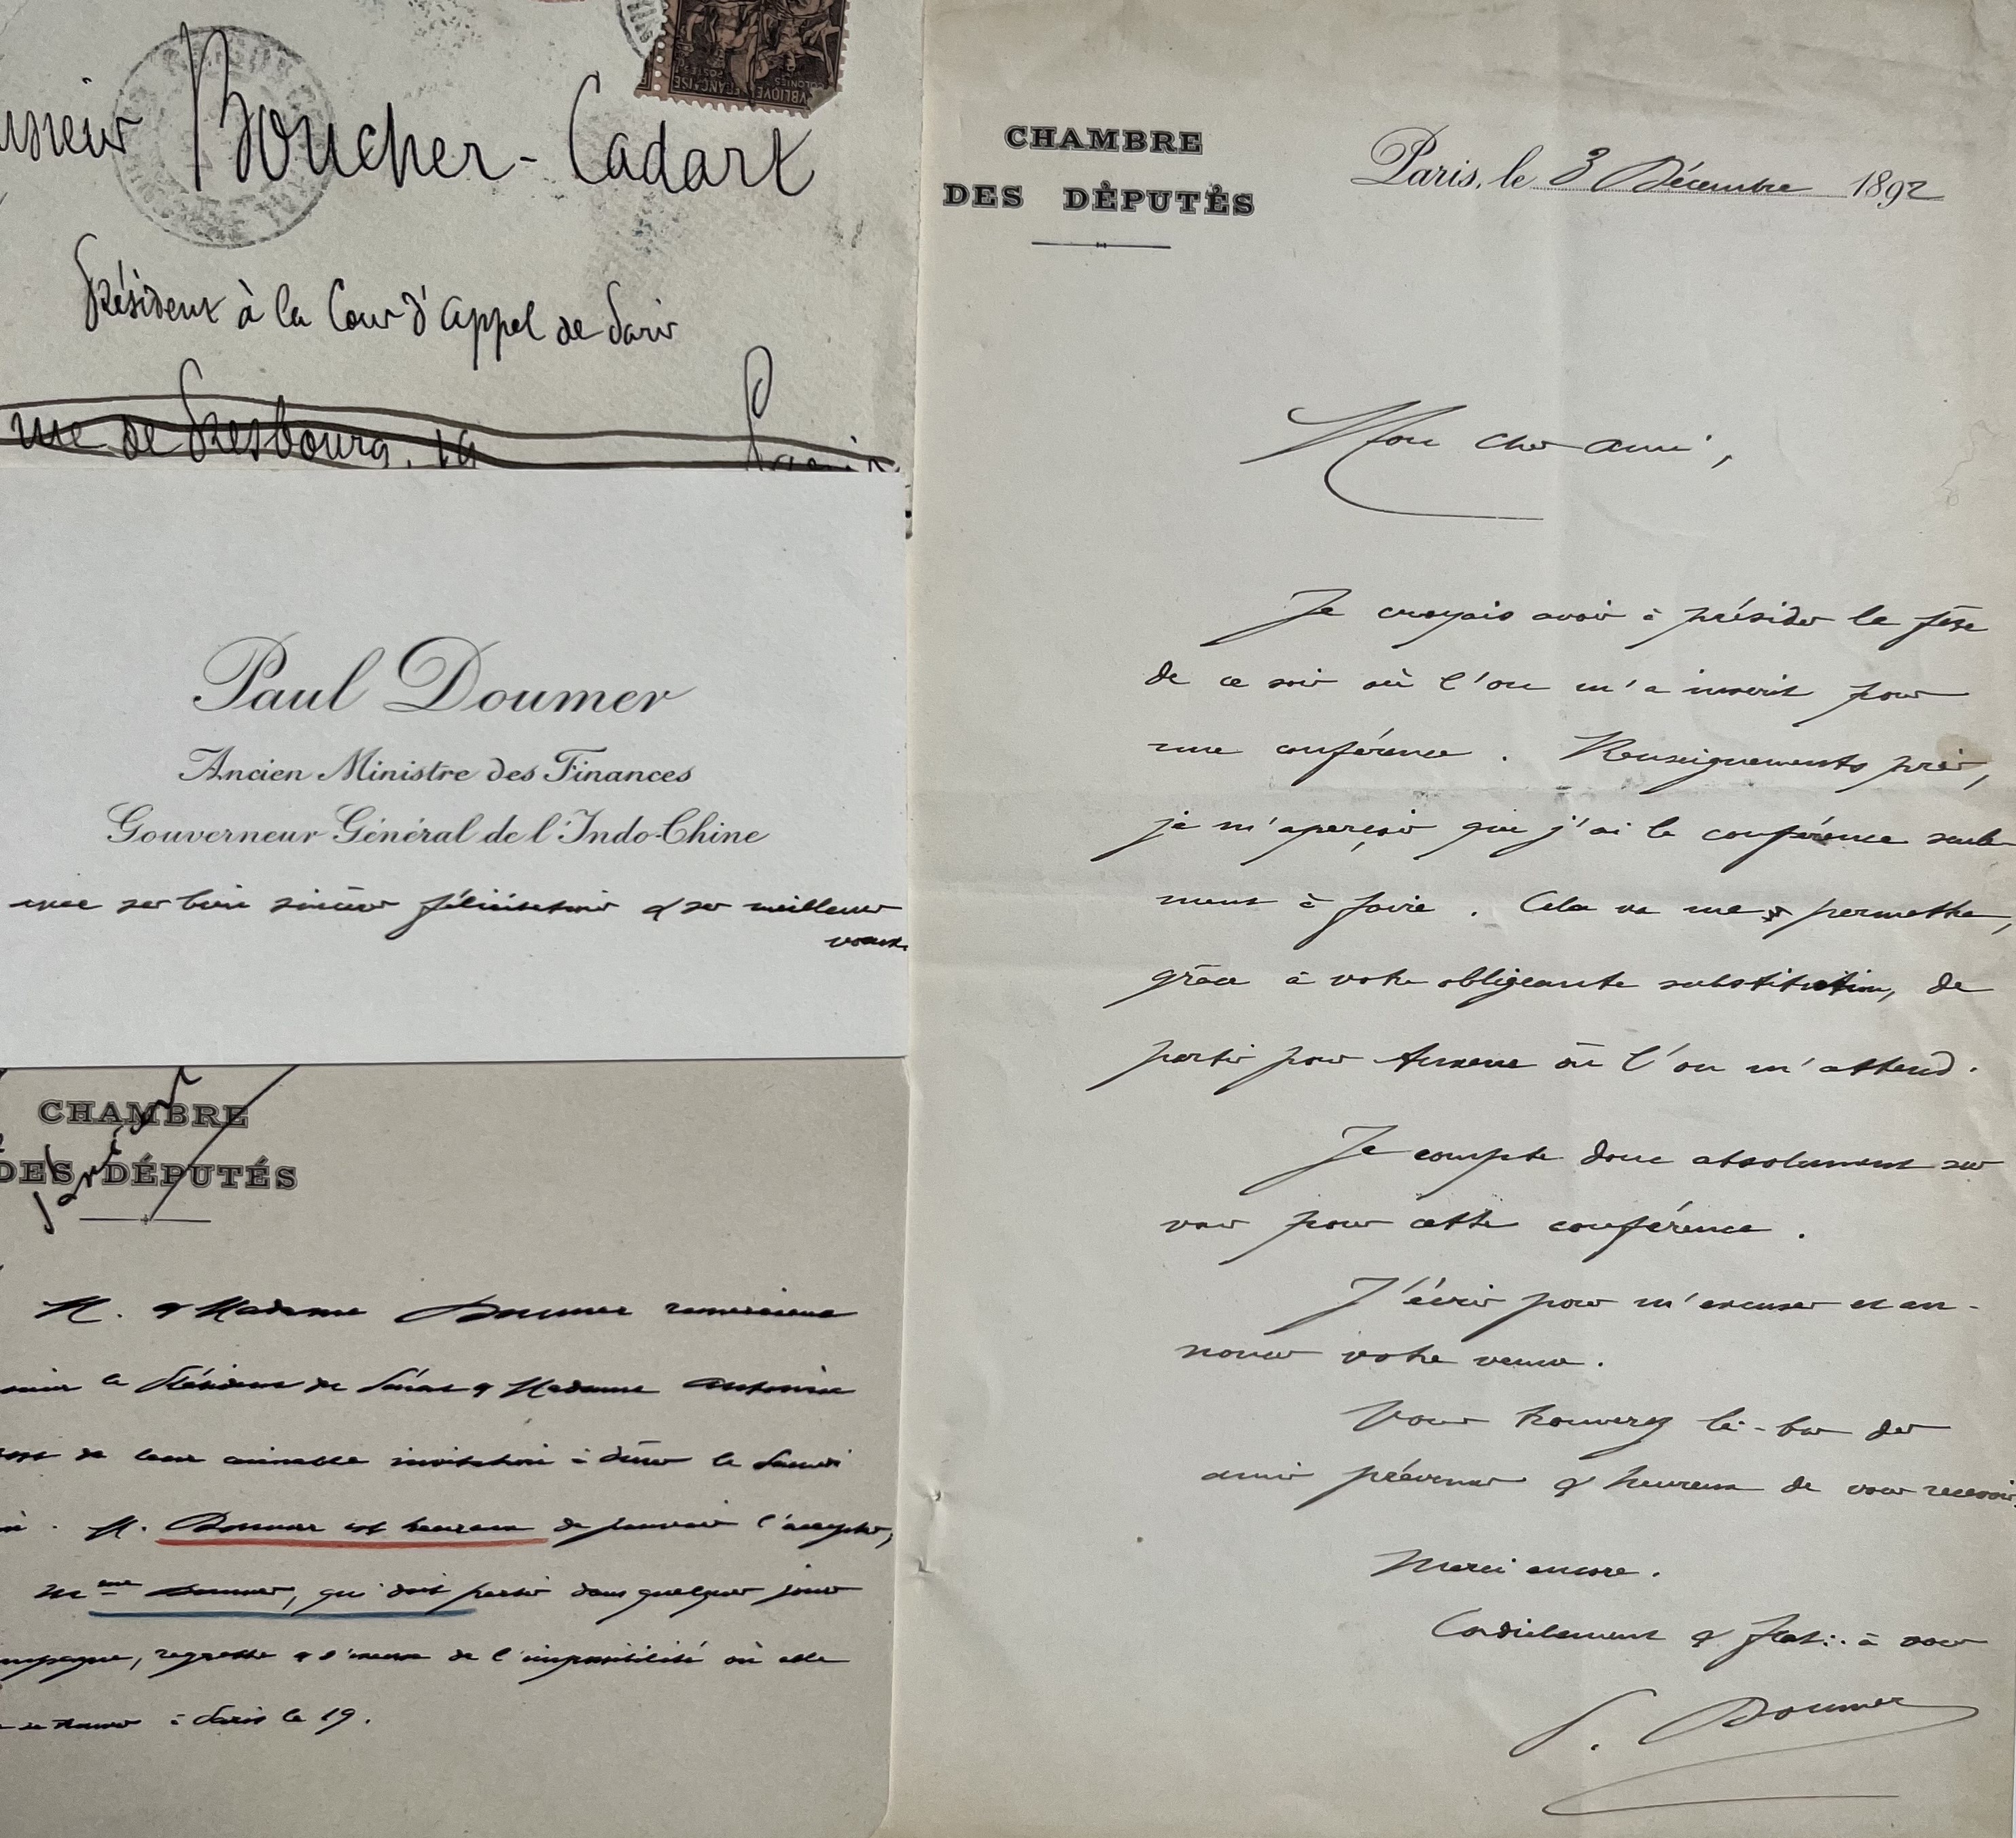 Boucher-Cadart
Président à la Cour d'appel de Paris
rue de Presbourg, 19
Paris
Paul Doumer
Ancien Ministre des Finances
Gouverneur Général de l'Indo-Chine
avec ses bien sincères félicitations & ses meilleurs
vœux
CHAMBRE
DES DÉPUTÉS
M. & Madame Doumer remercient
le Président du Sénat & Madame Antonin
de leur aimable invitation à dîner le
M. Doumer est heureux de pouvoir l'accepter,
Mme Doumer, qui doit partir dans quelques jours
regrette & s'excuse de l'impossibilité où elle
se trouver à Paris le 19.
CHAMBRE
DES DÉPUTÉS
Paris, le 3 Décembre 1892
Mon cher ami,
Je croyais avoir à présider la fête
de ce soir où l'on m'a inscrit pour
une conférence. Renseignements pris,
je m'aperçois que j'ai la conférence seule-
ment à faire. Cela va me permettre,
grâce à votre obligeante substitution, de
partir pour où l'on m'attend.
Je compte donc absolument sur
vous pour cette conférence.
J'écris pour m'excuser et an-
noncer votre venue.
Vous trouverez là-bas des
amis prévenus & heureux de vous recevoir.
Merci encore.
Cordialement & frat∴ à vous
P. Doumer